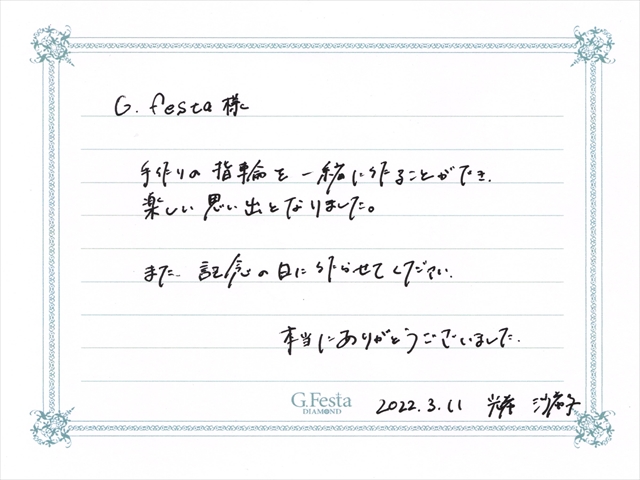 G. festa 様
手作りの指輪を一緒に作ることができ、
楽しい思い出となりました。
また 記念の日に作らせてください.
本当にありがとうございました.
G.Festa
DIAMOND
2022.3.11